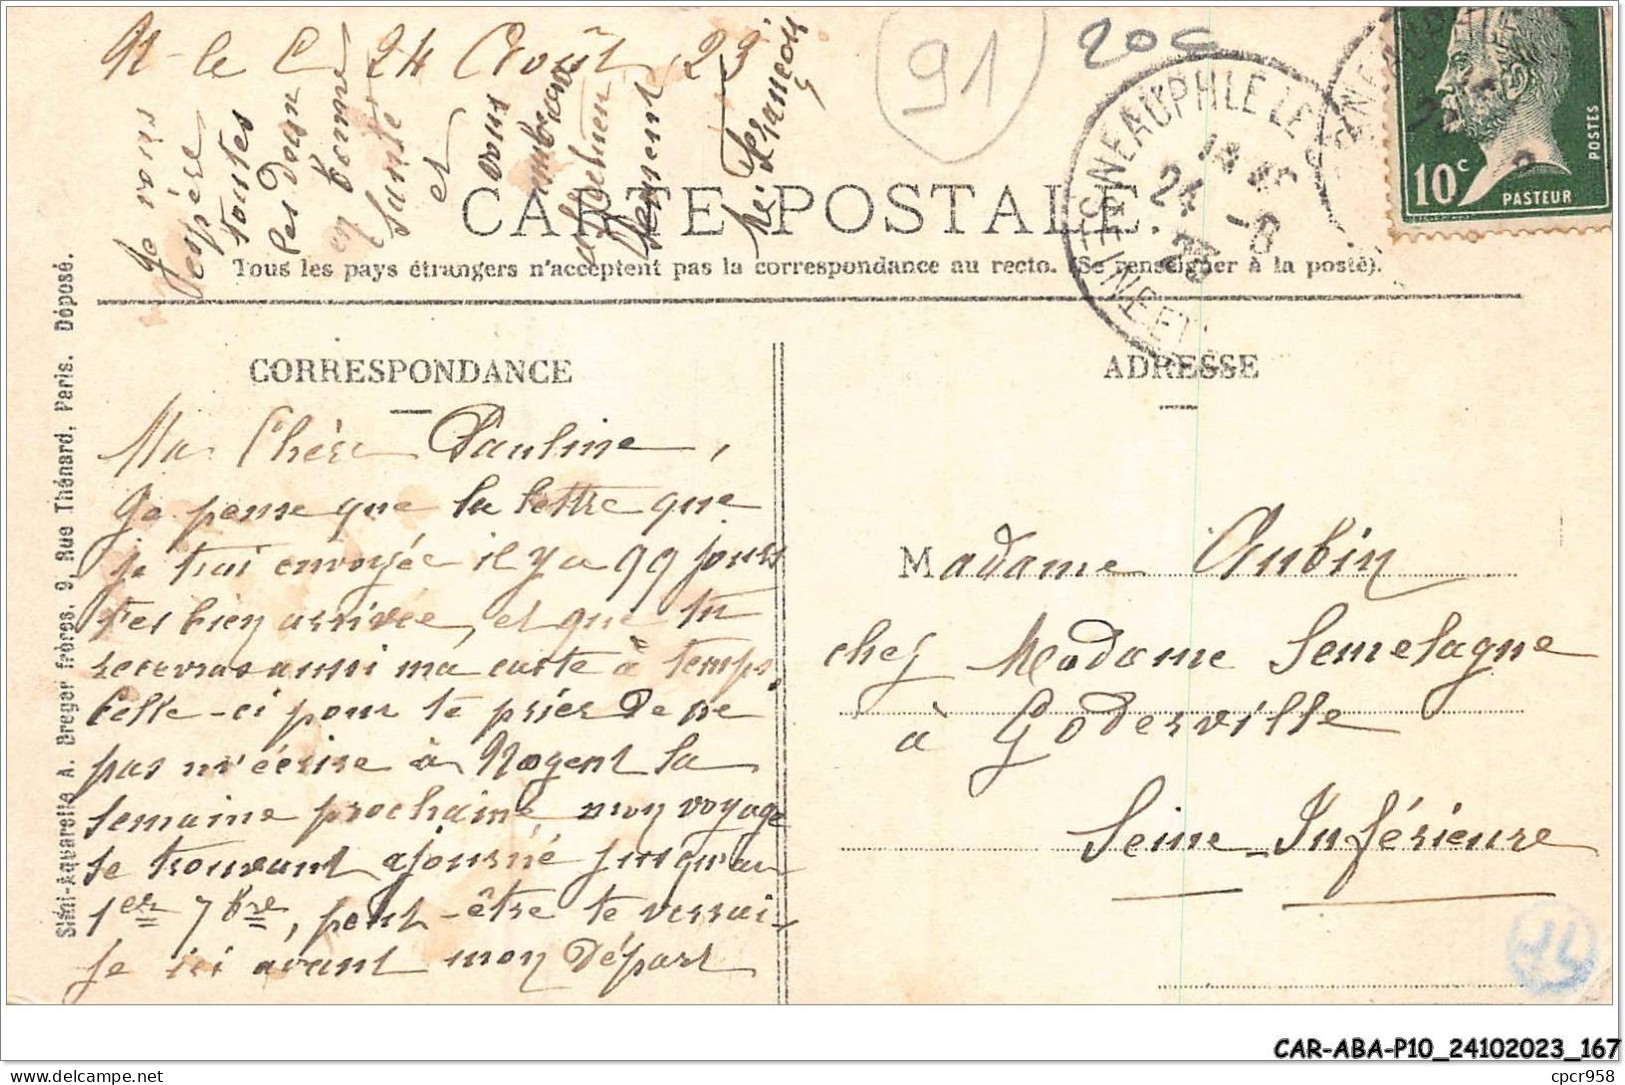 N-le C 24 Août 23
91
20c
NEAUPHLE LE
24 -8
23
SEINE ET
10c
PASTEUR
POSTES
CARTE POSTALE.
Tous les pays étrangers n'acceptent pas la correspondance au recto. (Se renseigner à la poste).
CORRESPONDANCE
ADRESSE
Ma Chère Pauline,
Je pense que la lettre que
je t'ai envoyée il y a qq jours
t'es bien arrivée, et que tu
recevras aussi ma carte à temps,
Celle-ci pour te prier de ne
pas m'écrire à Nogent la
semaine prochaine, mon voyage
se trouvant ajourné jusqu'au
1er 7bre, peut-être te verrai-
je ici avant mon départ
Je vous
espère
toutes
les deux
en bonne
santé
et
vous
embrasse
affectueu
sement
Madame Aubin
chez Madame Lemelagne
à Goderville
Seine-Inférieure
Simi-Aquarelle A. Breger frères, 9, Rue Thénard, Paris. Déposé.
JL
CAR-ABA-P10_24102023_167
cpcr958